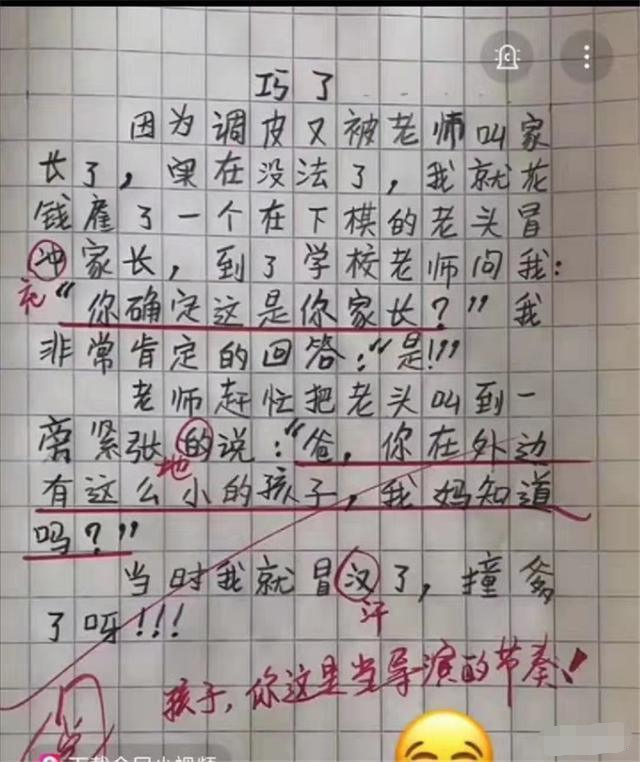 巧了
因为调皮又被老师叫家
长了，实在没法了，我就花
钱雇了一个在下棋的老头冒
冲家长，到了学校老师问我：
充
“你确定这是你家长？”我
非常肯定的回答：“是!!!”
老师赶忙把老头叫到一
旁紧张的说：“爸，你在外边
地
有这么小的孩子，我妈知道
吗？”
当时我就冒汉了，撞爹
汗
了呀!!!
孩子，你这是当导演的节奏！
下载全民小视频